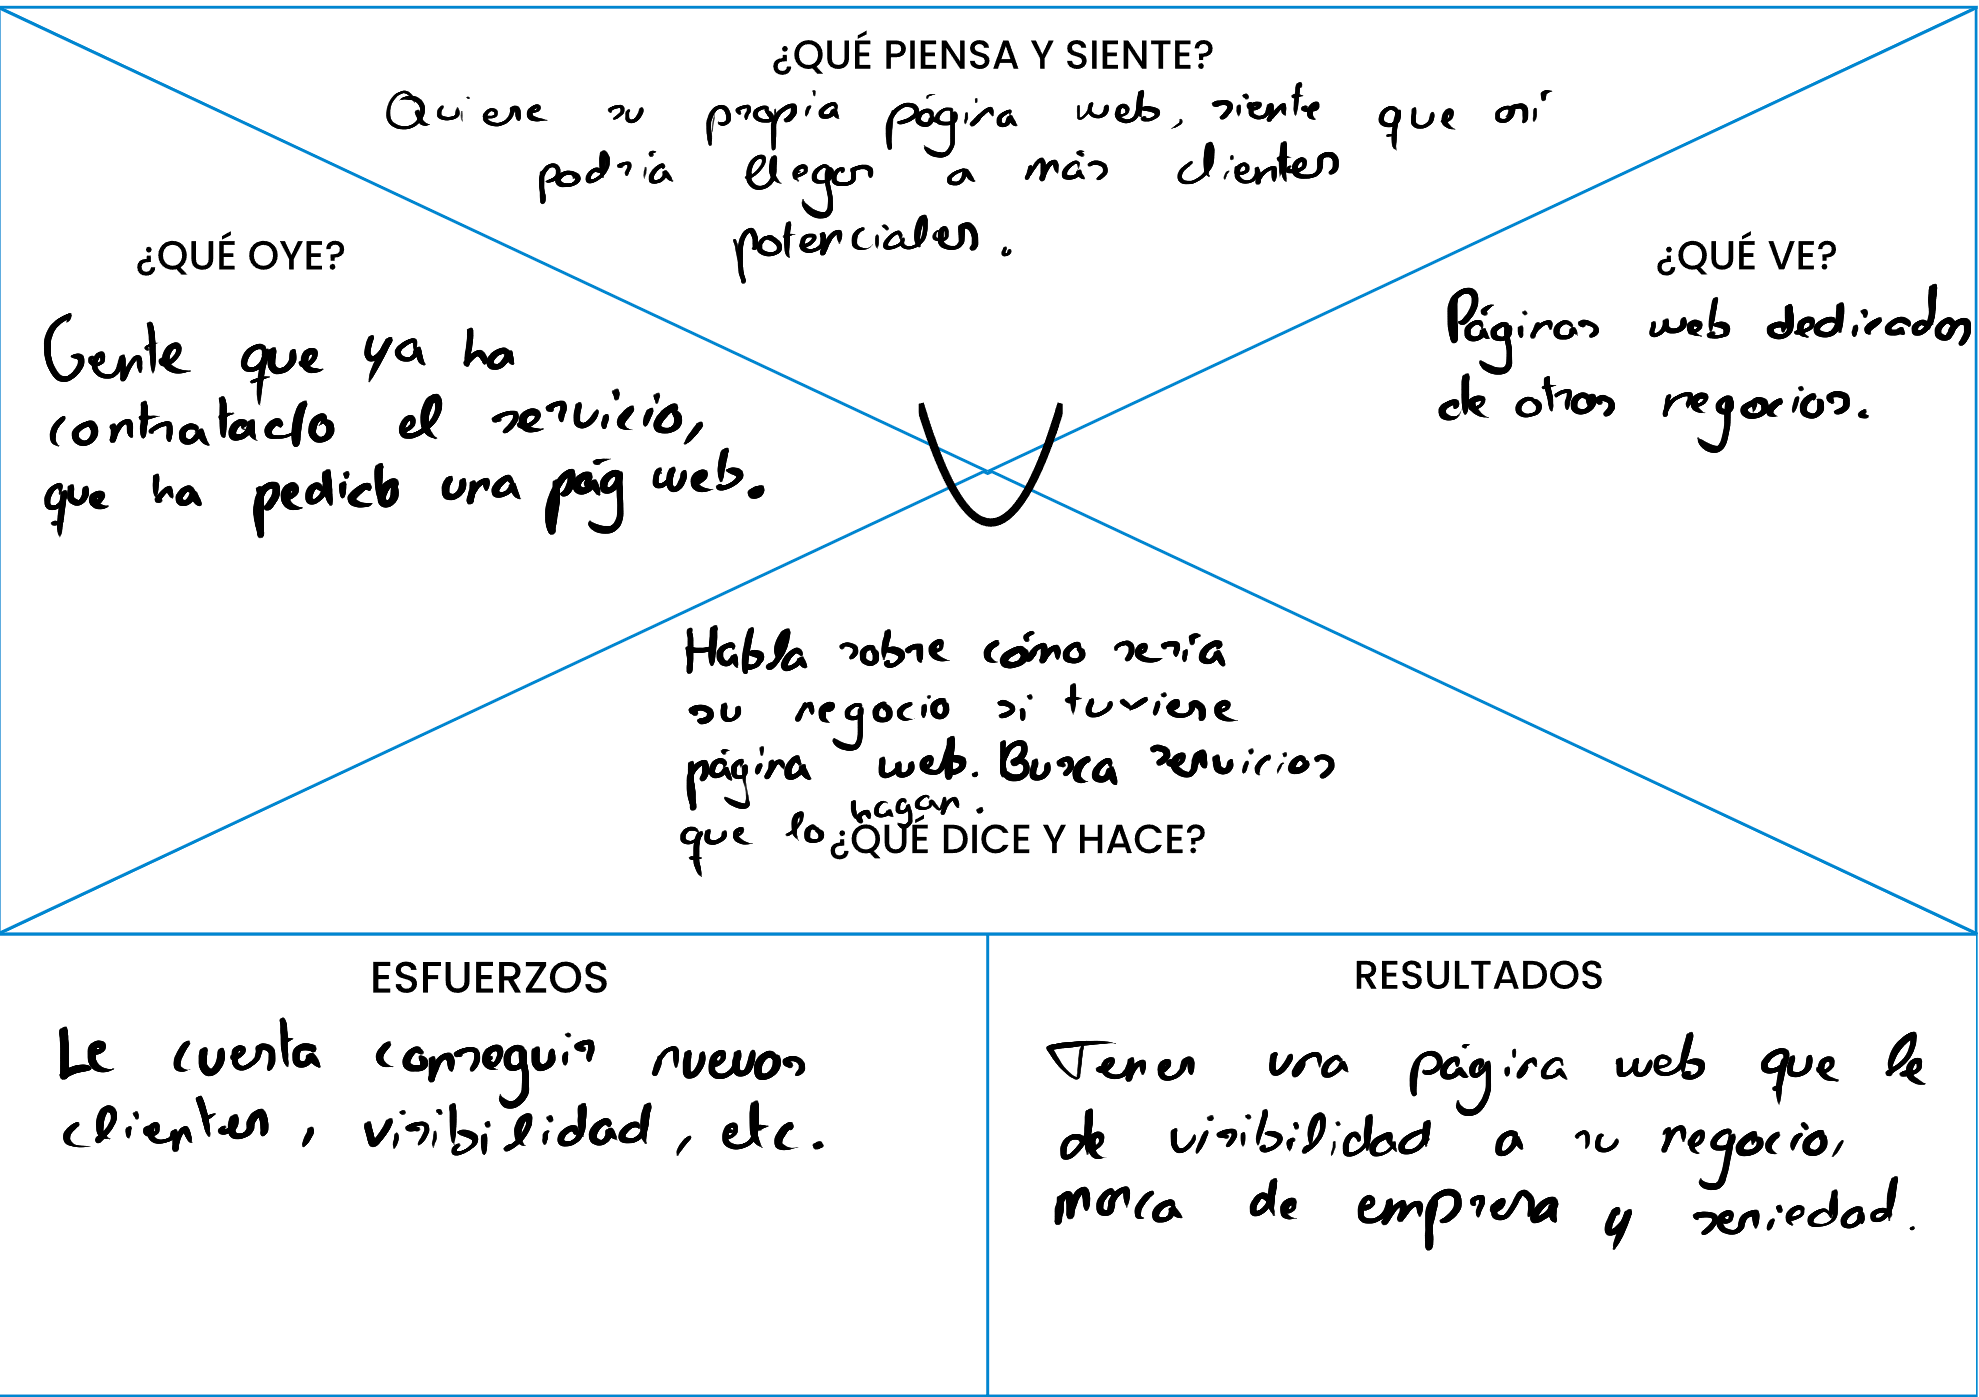 ¿QUÉ PIENSA Y SIENTE?
Quiere su propia página web, siente que así
podría llegar a más clientes
potenciales.
¿QUÉ OYE?
Gente que ya ha
contratado el servicio,
que ha pedido una pág web.
¿QUÉ VE?
Páginas web dedicadas
de otros negocios.
Habla sobre cómo sería
su negocio si tuviese
página web. Busca servicios
que lo hagan.
¿QUÉ DICE Y HACE?
ESFUERZOS
Le cuesta conseguir nuevos
clientes, visibilidad, etc.
RESULTADOS
Tener una página web que le
de visibilidad a su negocio,
marca de empresa y seriedad.